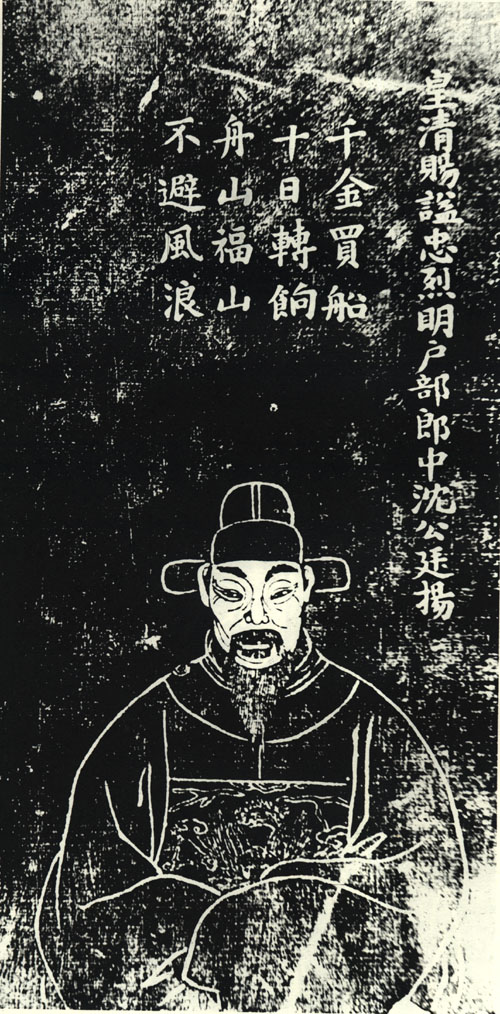 皇清賜謚忠烈明户部郎中沈公廷揚
千金買船
十日轉餉
舟山福山
不避風浪